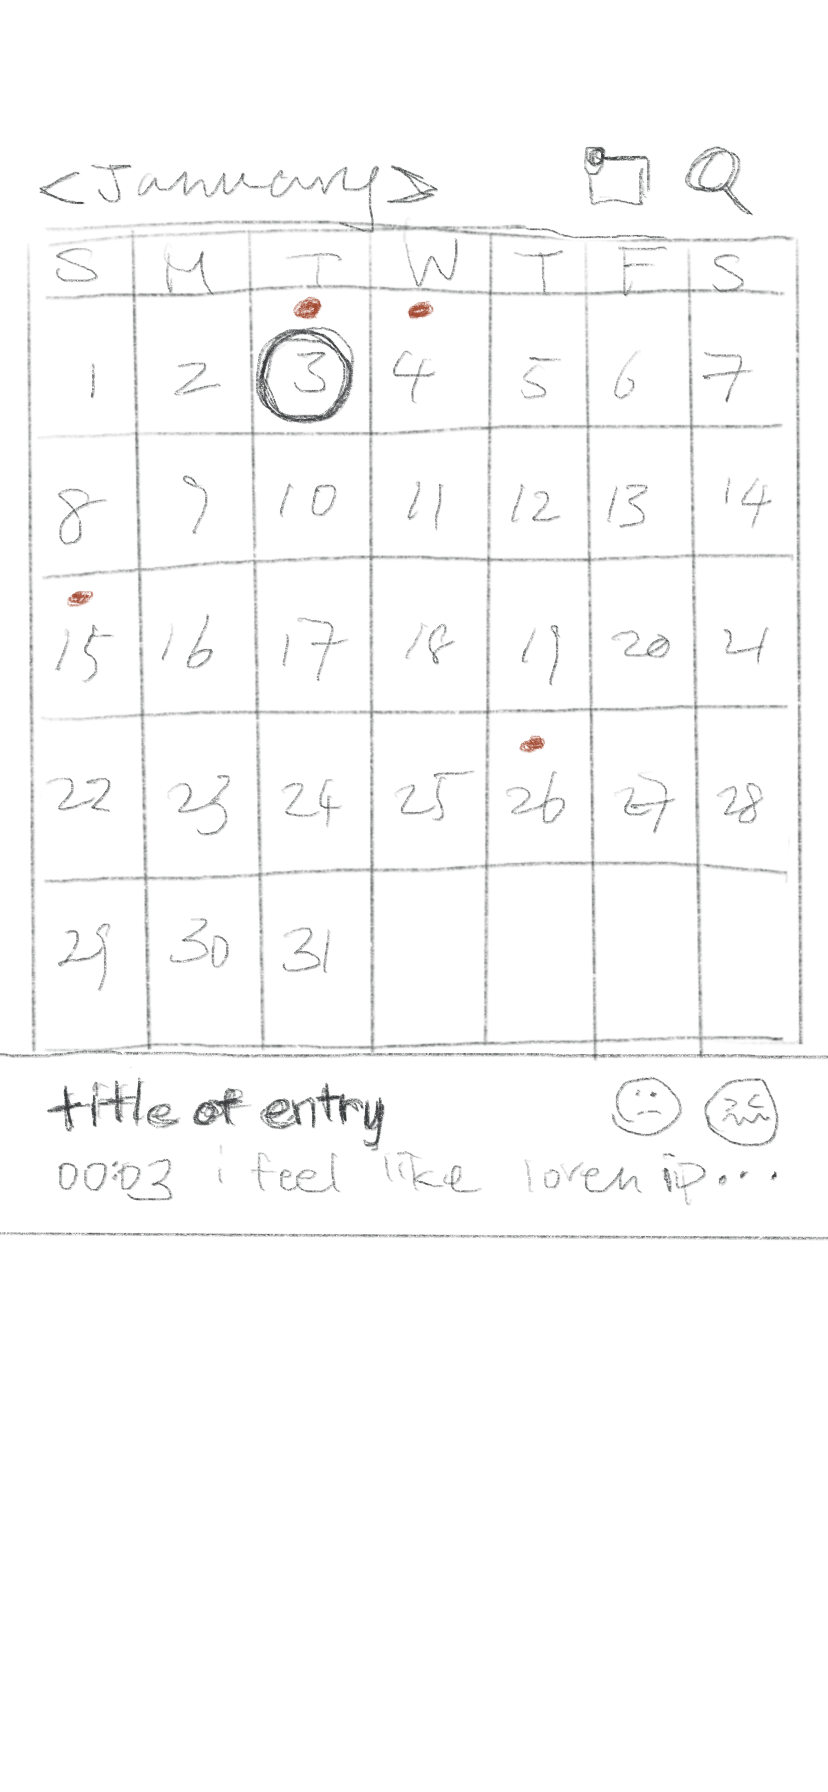 <January>
S M T W T F S
1 2 3 4 5 6 7
8 9 10 11 12 13 14
15 16 17 18 19 20 21
22 23 24 25 26 27 28
29 30 31
title of entry
00:03 i feel like loren ip...